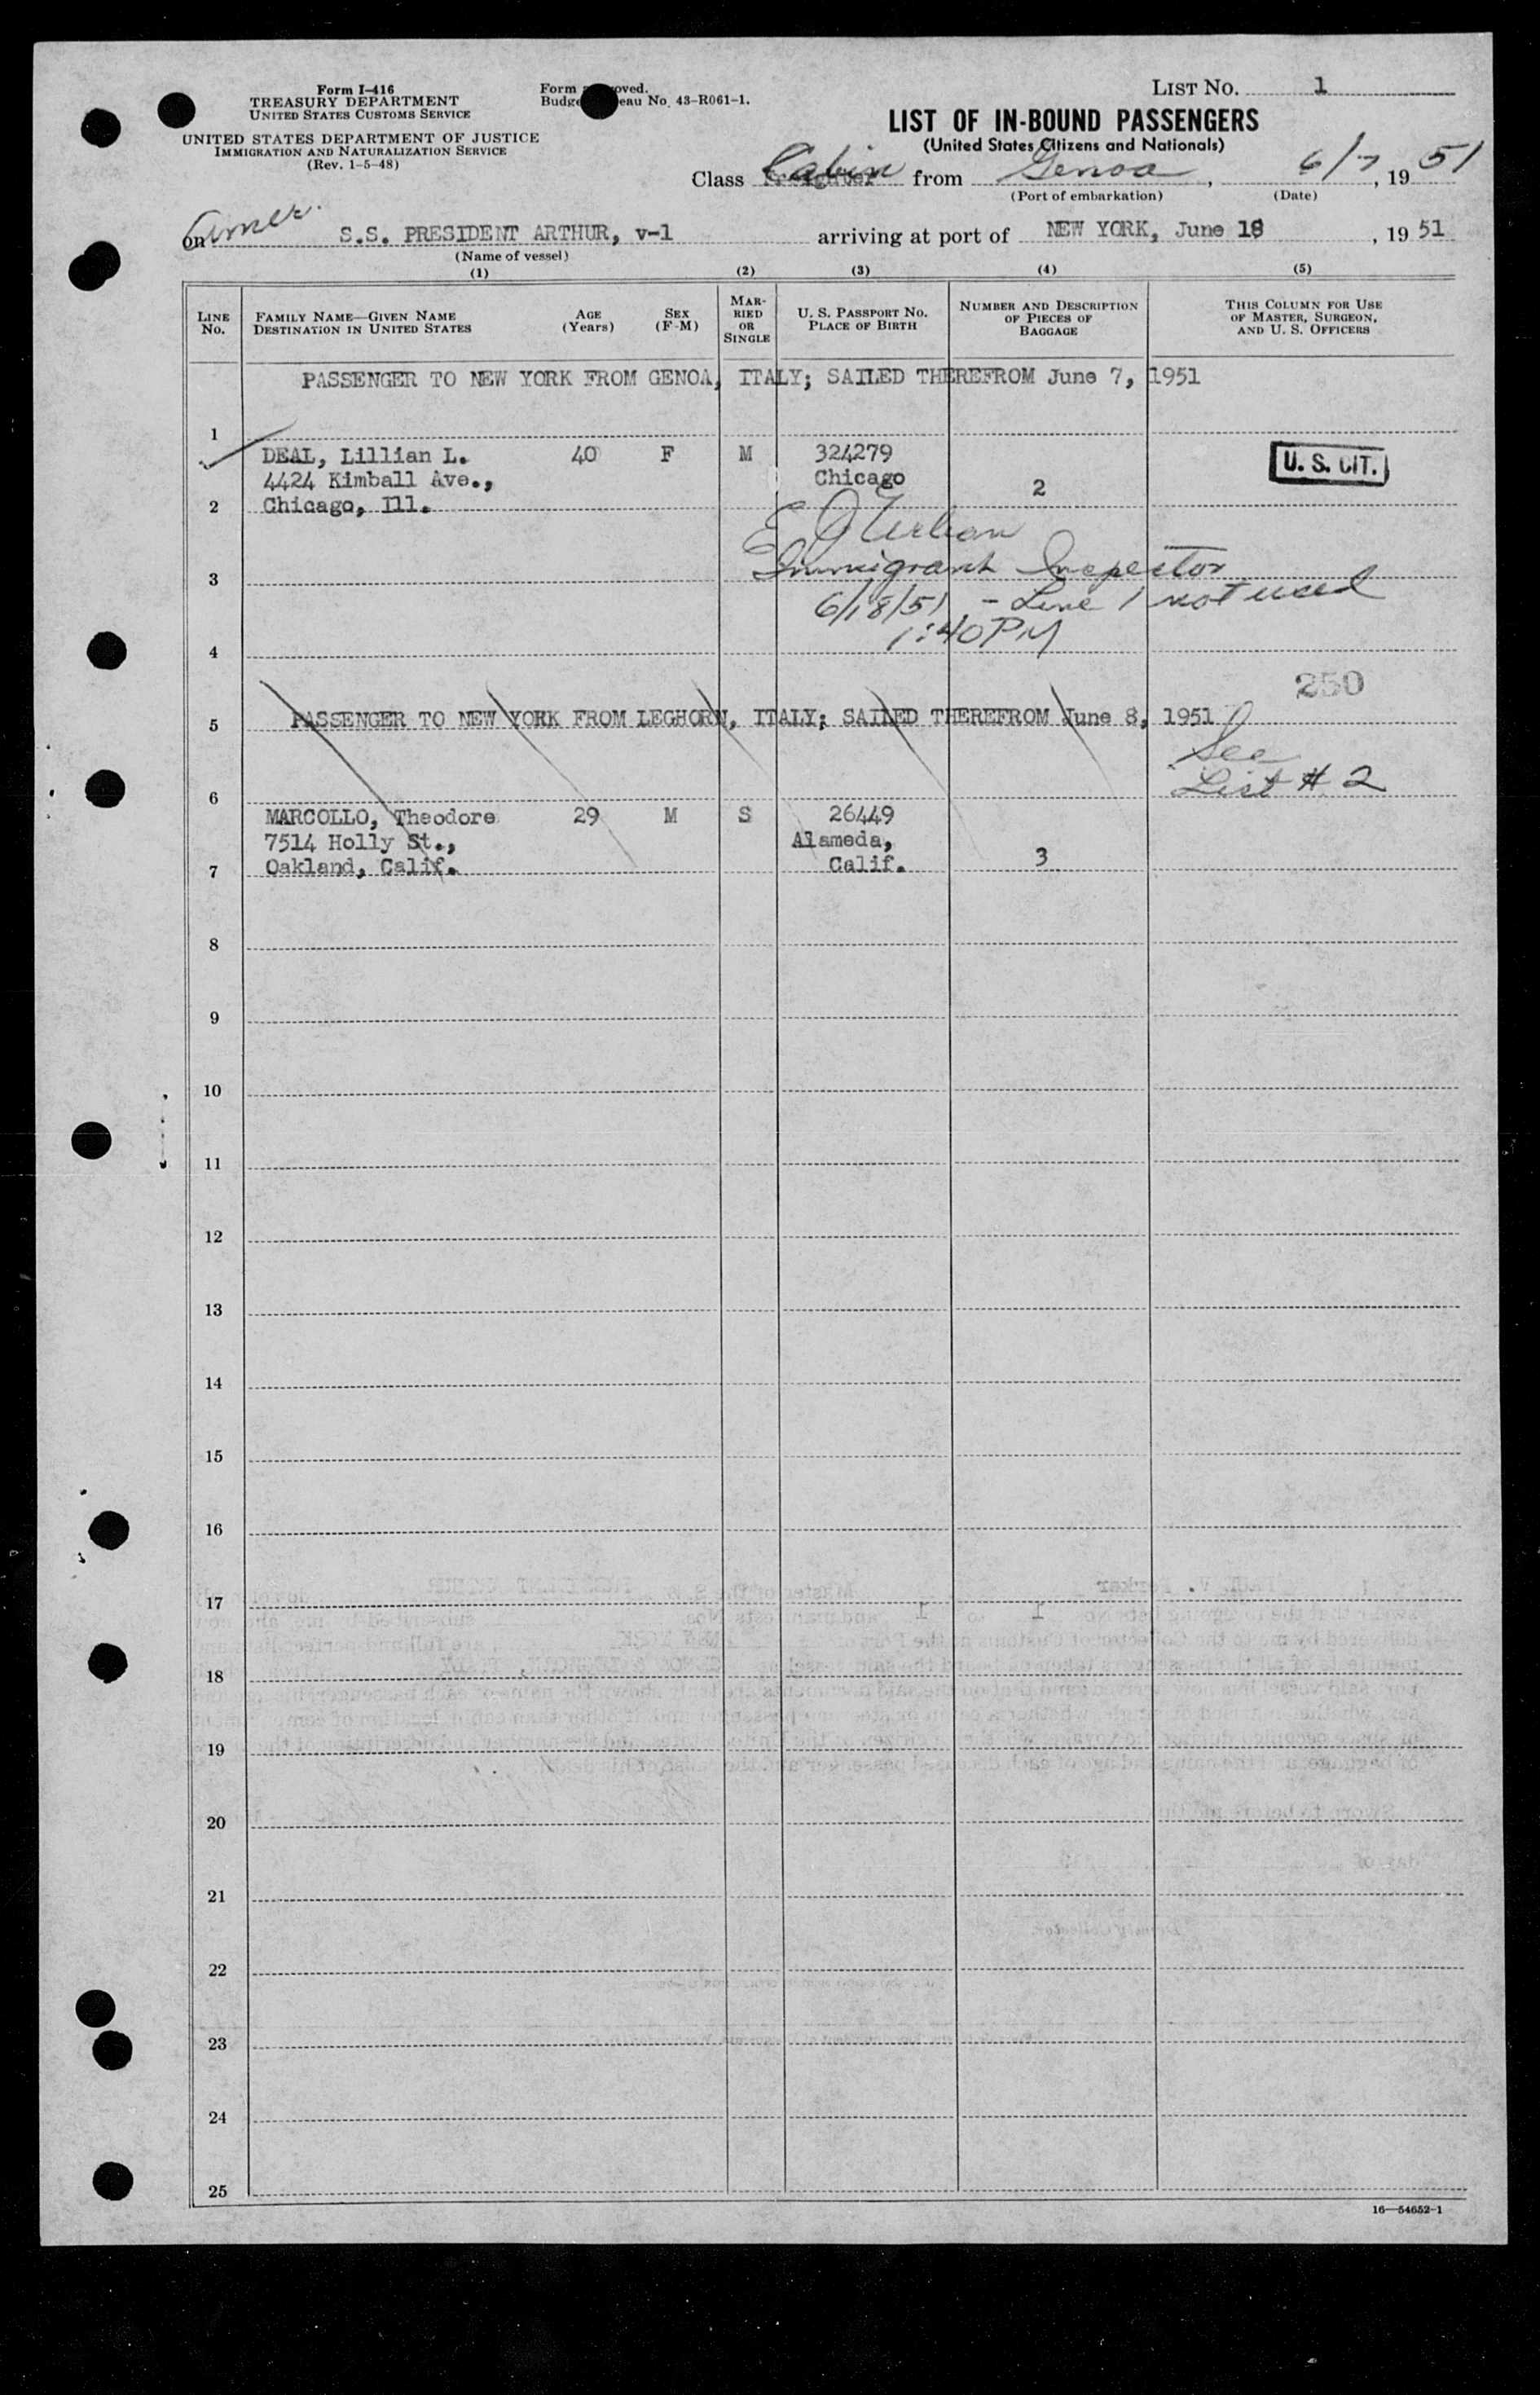 Form I-416
TREASURY DEPARTMENT
UNITED STATES CUSTOMS SERVICE
UNITED STATES DEPARTMENT OF JUSTICE
IMMIGRATION AND NATURALIZATION SERVICE
(Rev. 1-5-48)
Form
Budget No. 43-R061-1.
LIST NO. 1
LIST OF IN-BOUND PASSENGERS
(United States Citizens and Nationals)
Class Cabin from Genoa, 6/7, 1951
(Port of embarkation) (Date)
on Amer. S.S. PRESIDENT ARTHUR, v-1 arriving at port of NEW YORK, June 18, 1951
(Name of vessel)
(1) (2) (3) (4) (5)
LINE NO.
FAMILY NAME—GIVEN NAME
DESTINATION IN UNITED STATES
AGE (Years)
SEX (F-M)
MARRIED OR SINGLE
U. S. PASSPORT NO.
PLACE OF BIRTH
NUMBER AND DESCRIPTION OF PIECES OF BAGGAGE
THIS COLUMN FOR USE OF MASTER, SURGEON, AND U. S. OFFICERS
PASSENGER TO NEW YORK FROM GENOA, ITALY; SAILED THEREFROM June 7, 1951
1
DEAL, Lillian L. 40 F M 324279 U. S. CIT.
4424 Kimball Ave., Chicago
2 Chicago, Ill. 2
E J Urban
3 Immigrant Inspector
6/18/51 - Line 1 not used
1:40 PM
4
250
5 PASSENGER TO NEW YORK FROM LEGHORN, ITALY; SAILED THEREFROM June 8, 1951
See
6 List # 2
MARCOLLO, Theodore 29 M S 26449
7514 Holly St., Alameda,
7 Oakland, Calif. Calif. 3
8
9
10
11
12
13
14
15
16
17
18
19
20
21
22
23
24
25
16—54652-1